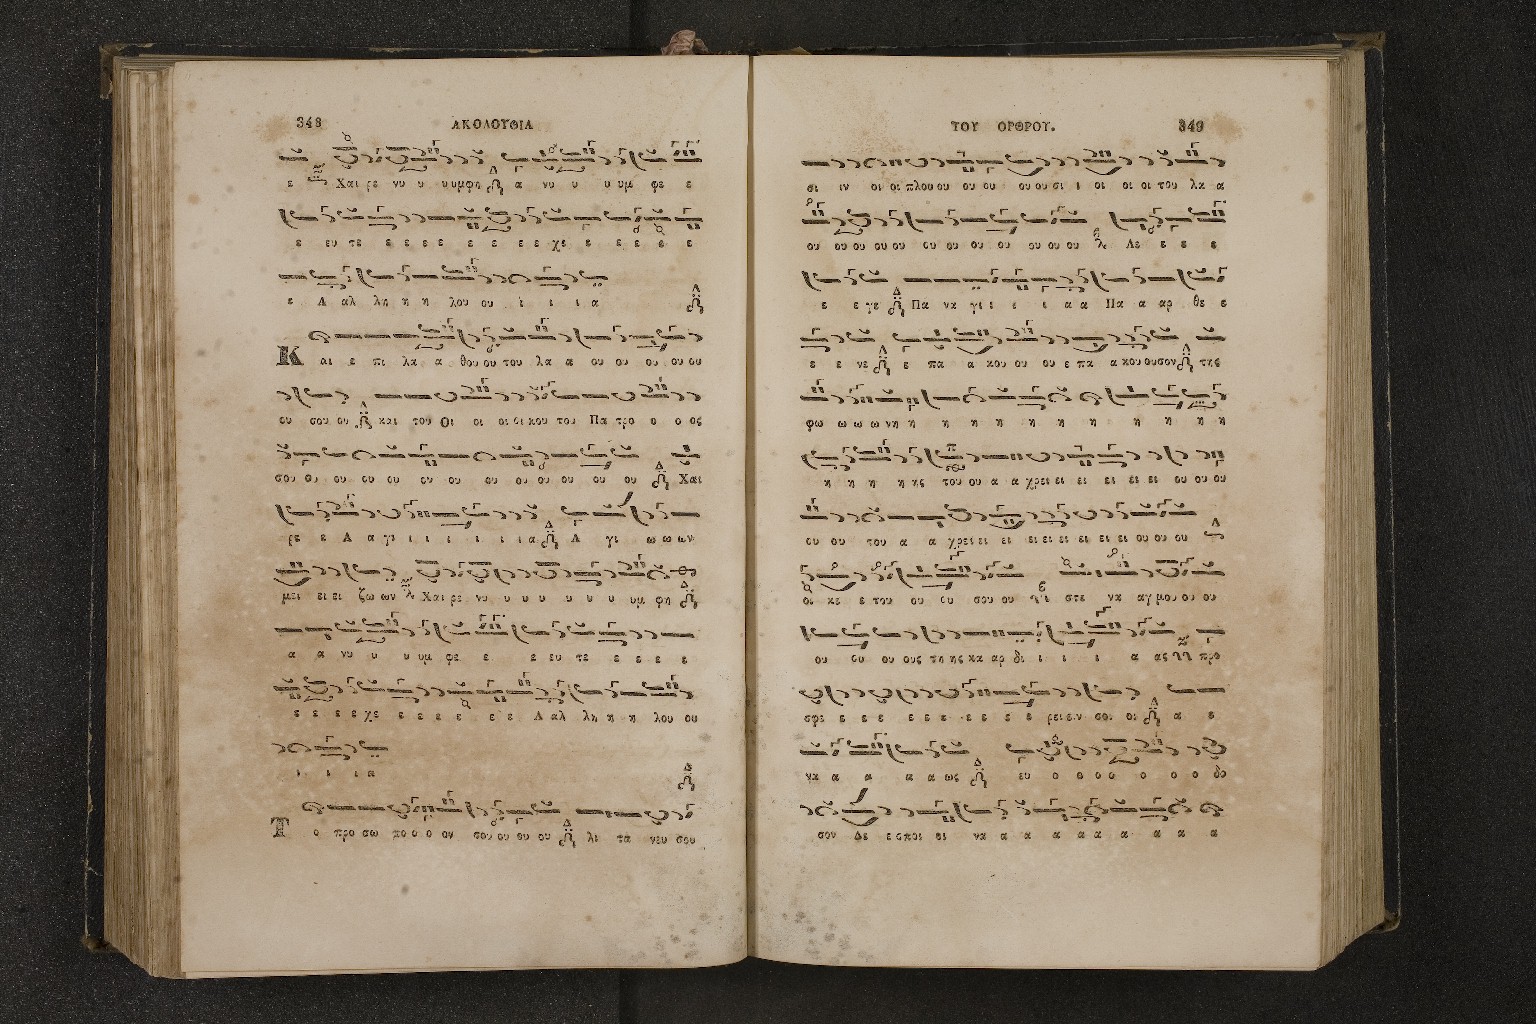 348 ΑΚΟΛΟΥΘΙΑ
ε Χαι ρε νυ υ υυμφη α νυ υ υ υμ φε ε
ε ευ τε ε ε ε ε ε ε ε ε χε ε ε ε ε ε
ε Α αλ λη η η λου ου ι ι ι α
Κ αι ε πι λα α θου ου του λα α ου ου ου ου ου
ου σου ου και του Οι οι οι οι κου του Πα τρο ο ο ος
σου ου ου ου ου ου ου ου ου ου ου ου ου Χαι
ρε ε Α α γι ι ι ι ι ι ι α Α γι ω ω ων
μει ει ει ζω ων Χαι ρε νυ υ υ υ υ υ υ υμ φη
α α νυ υ υ υμ φε ε ε ευ τε ε ε ε ε
ε ε ε ε χε ε ε ε ε ε ε Α αλ λη η η λου ου
ι ι ι α
Τ ο προ σω πο ο ο ον σου ου ου ου λι τα νευ σου
ΤΟΥ ΟΡΘΡΟΥ. 349
σι ιν οι οι πλου ου ου ου ου ου σι ι οι οι οι του λα α
ου ου ου ου ου ου ου ου ου ου ου ου Λε ε ε ε
ε ε γε Πα να γι ι ι ι α α Πα α αρ θε ε
ε ε νε ε πα α κου ου ου ε πα α κου ουσον της
φω ω ω ω νη η η η η η η η η η η
η η η η ης του ου α α χρει ει ει ει ει ει ου ου ου
ου ου του α α χρει ει ει ει ει ει ει ει ου ου ου
οι κε ε του ου ου σου ου στε να αγ μου ου ου
ου ου ου ους τη ης κα αρ δι ι ι ι α ας προ
σφε ε ε ε ε ε ε ε ε ε ε ρει ειν σοι οι α ε
να α α α α ως ευ ο ο ο ο ο ο ο δο
σον Δε ε σποι οι να α α α α α α α α α